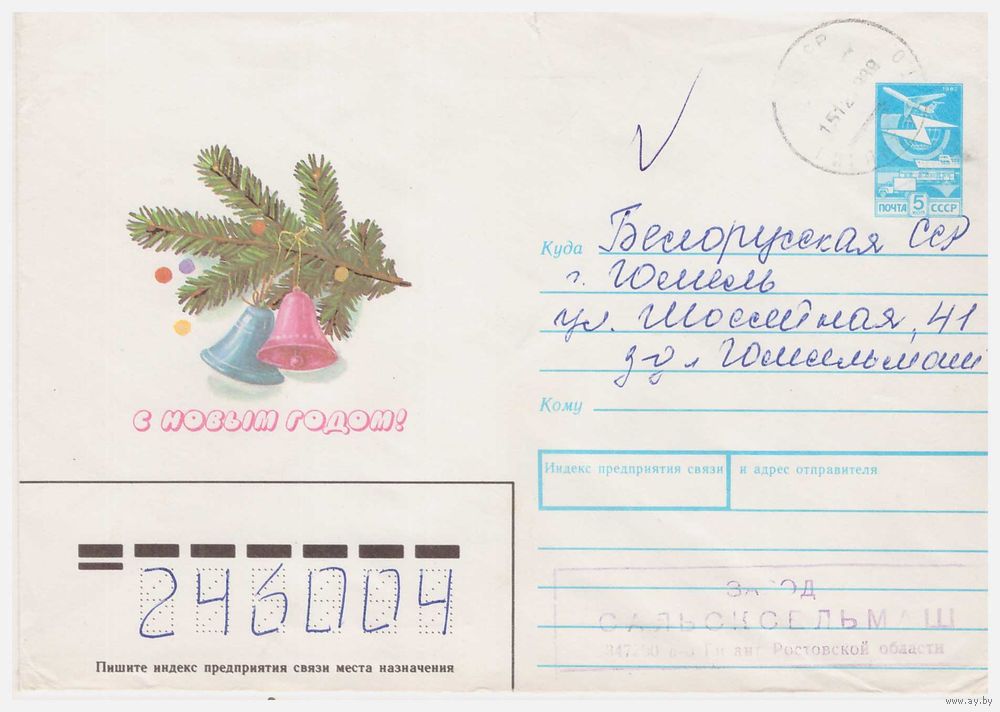 1982
ПОЧТА 5 КОП СССР
Куда Белорусская ССР
г. Гомель
ул. Шоссейная, 41
з-д Гомсельмаш
Кому
С НОВЫМ ГОДОМ!
Индекс предприятия связи и адрес отправителя
246004
Пишите индекс предприятия связи места назначения
ЗАВОД
САЛЬСКСЕЛЬМАШ
Гигант Ростовской области
www.ay.by